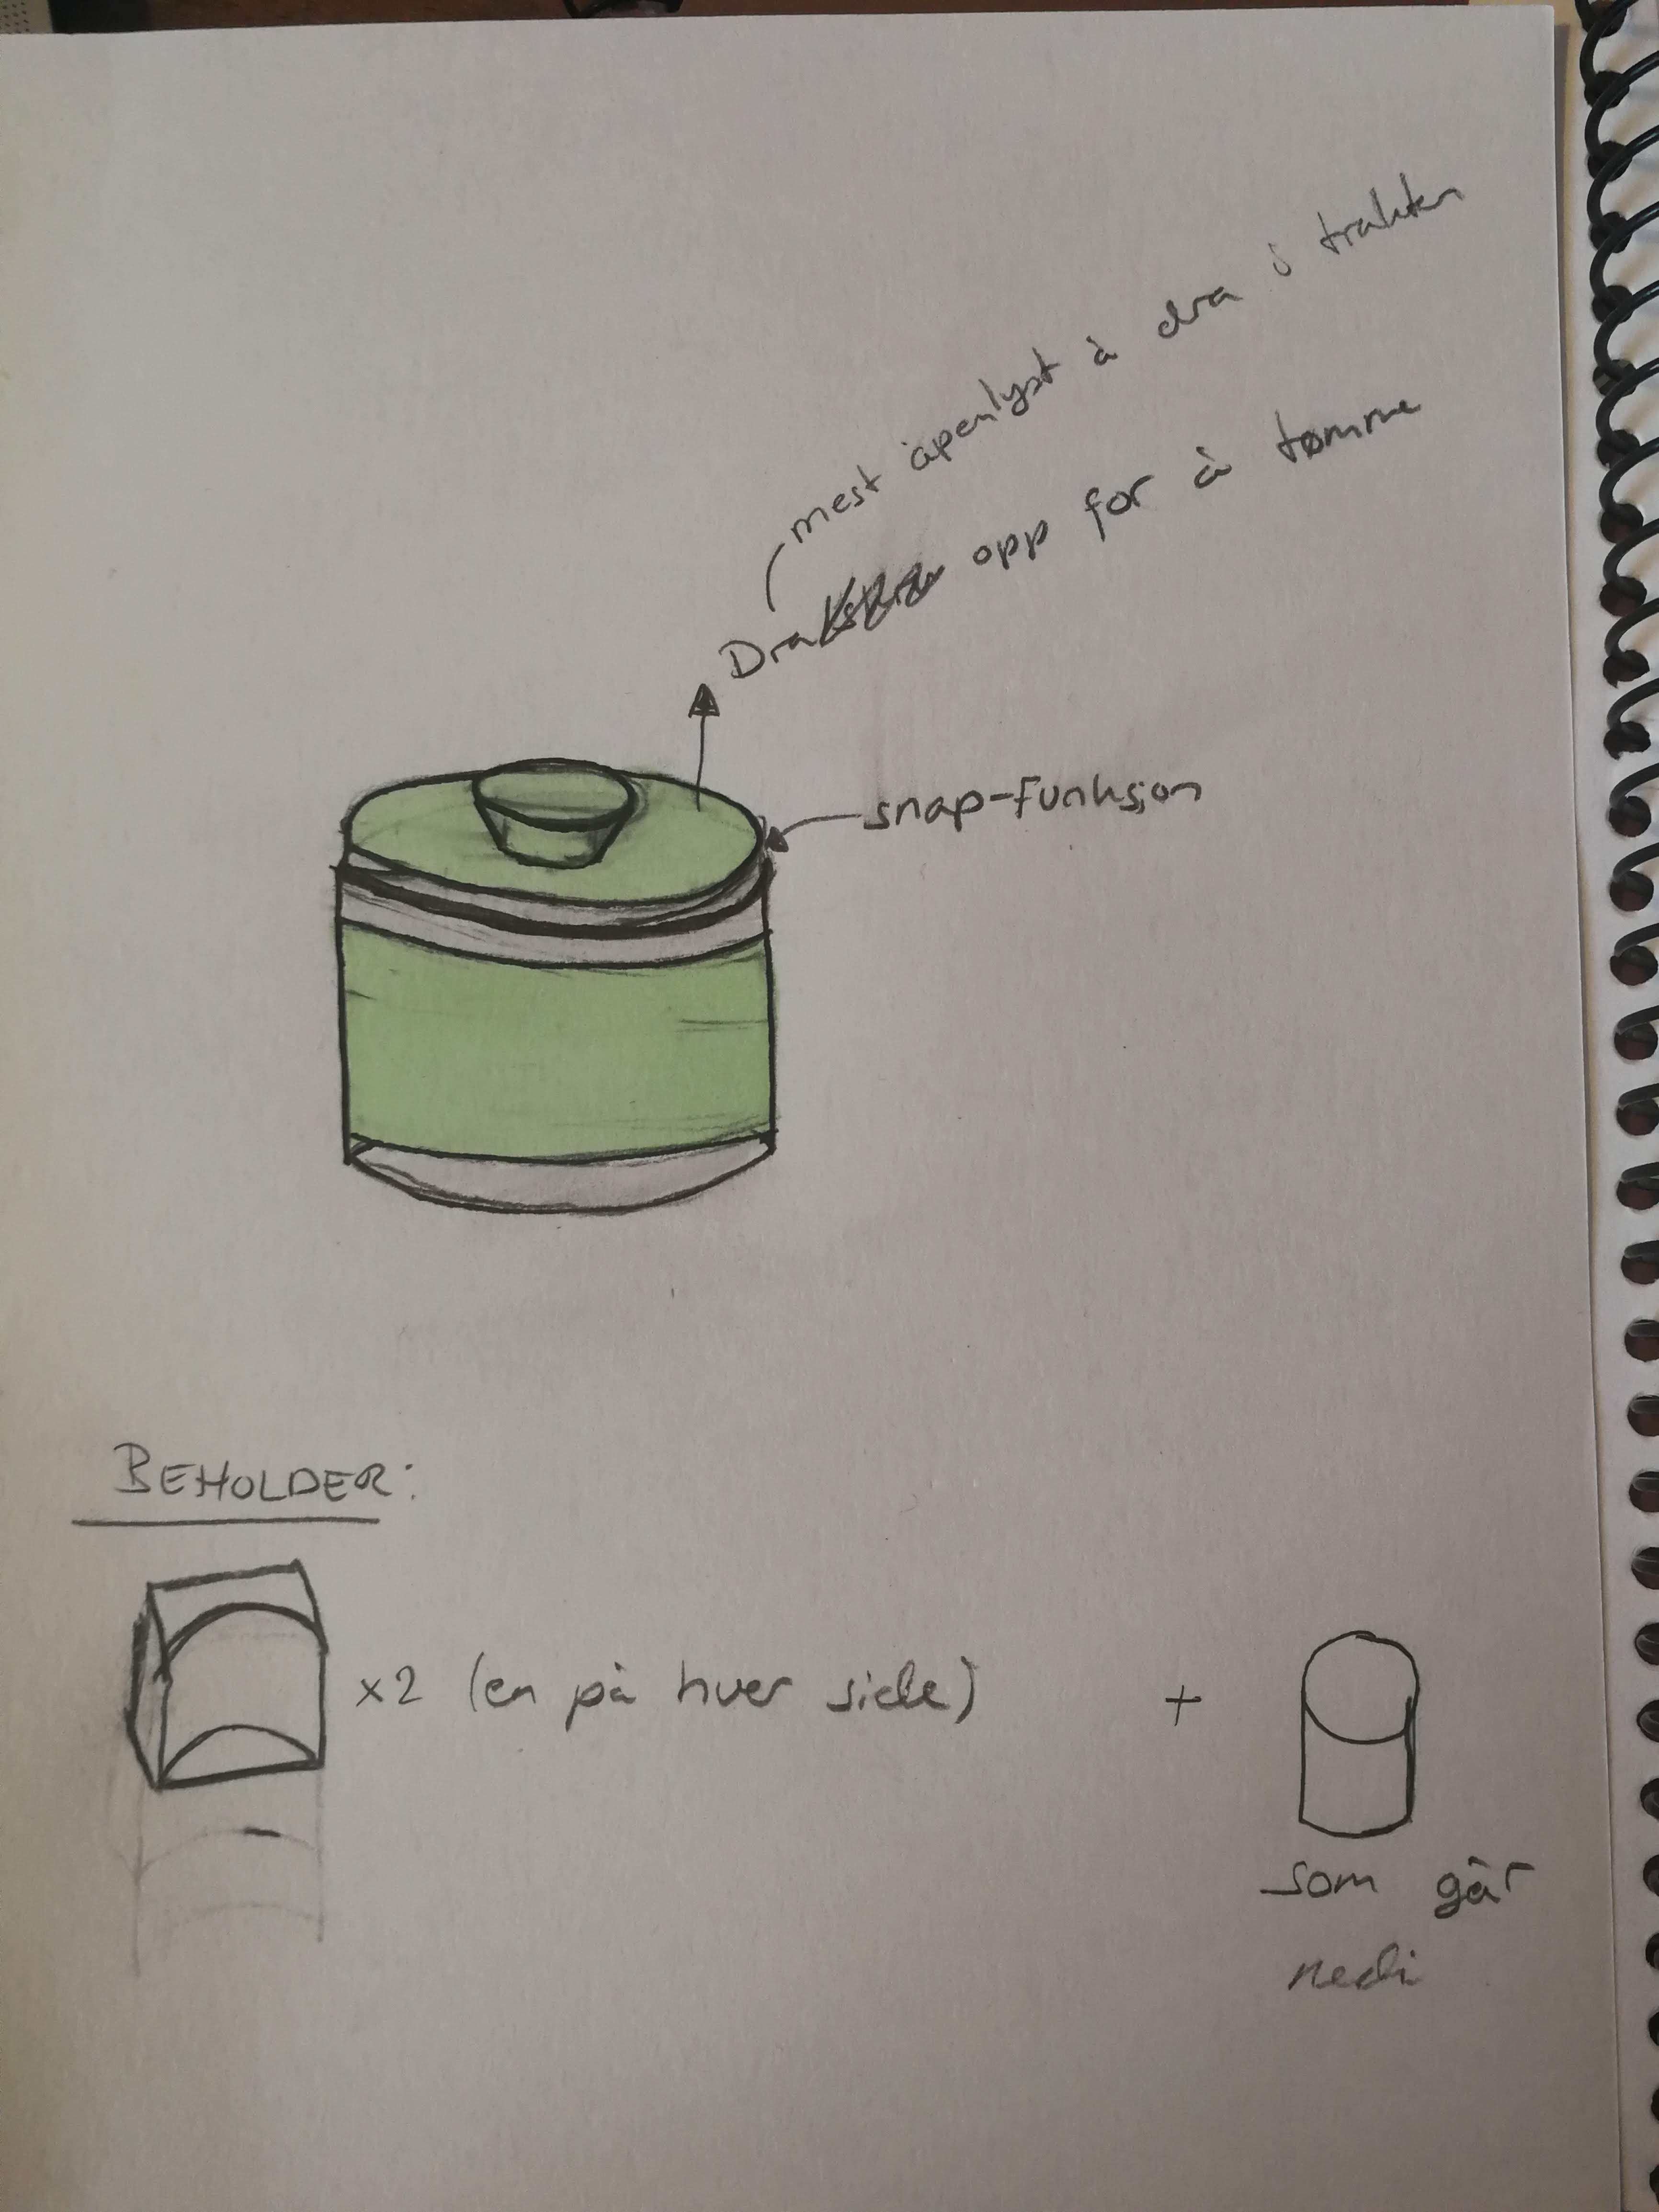 mest åpenlyst å dra i trakten
Dra opp for å tømme
snap-funksjon
BEHOLDER:
x2 (en på hver side)
+
som går
nedi